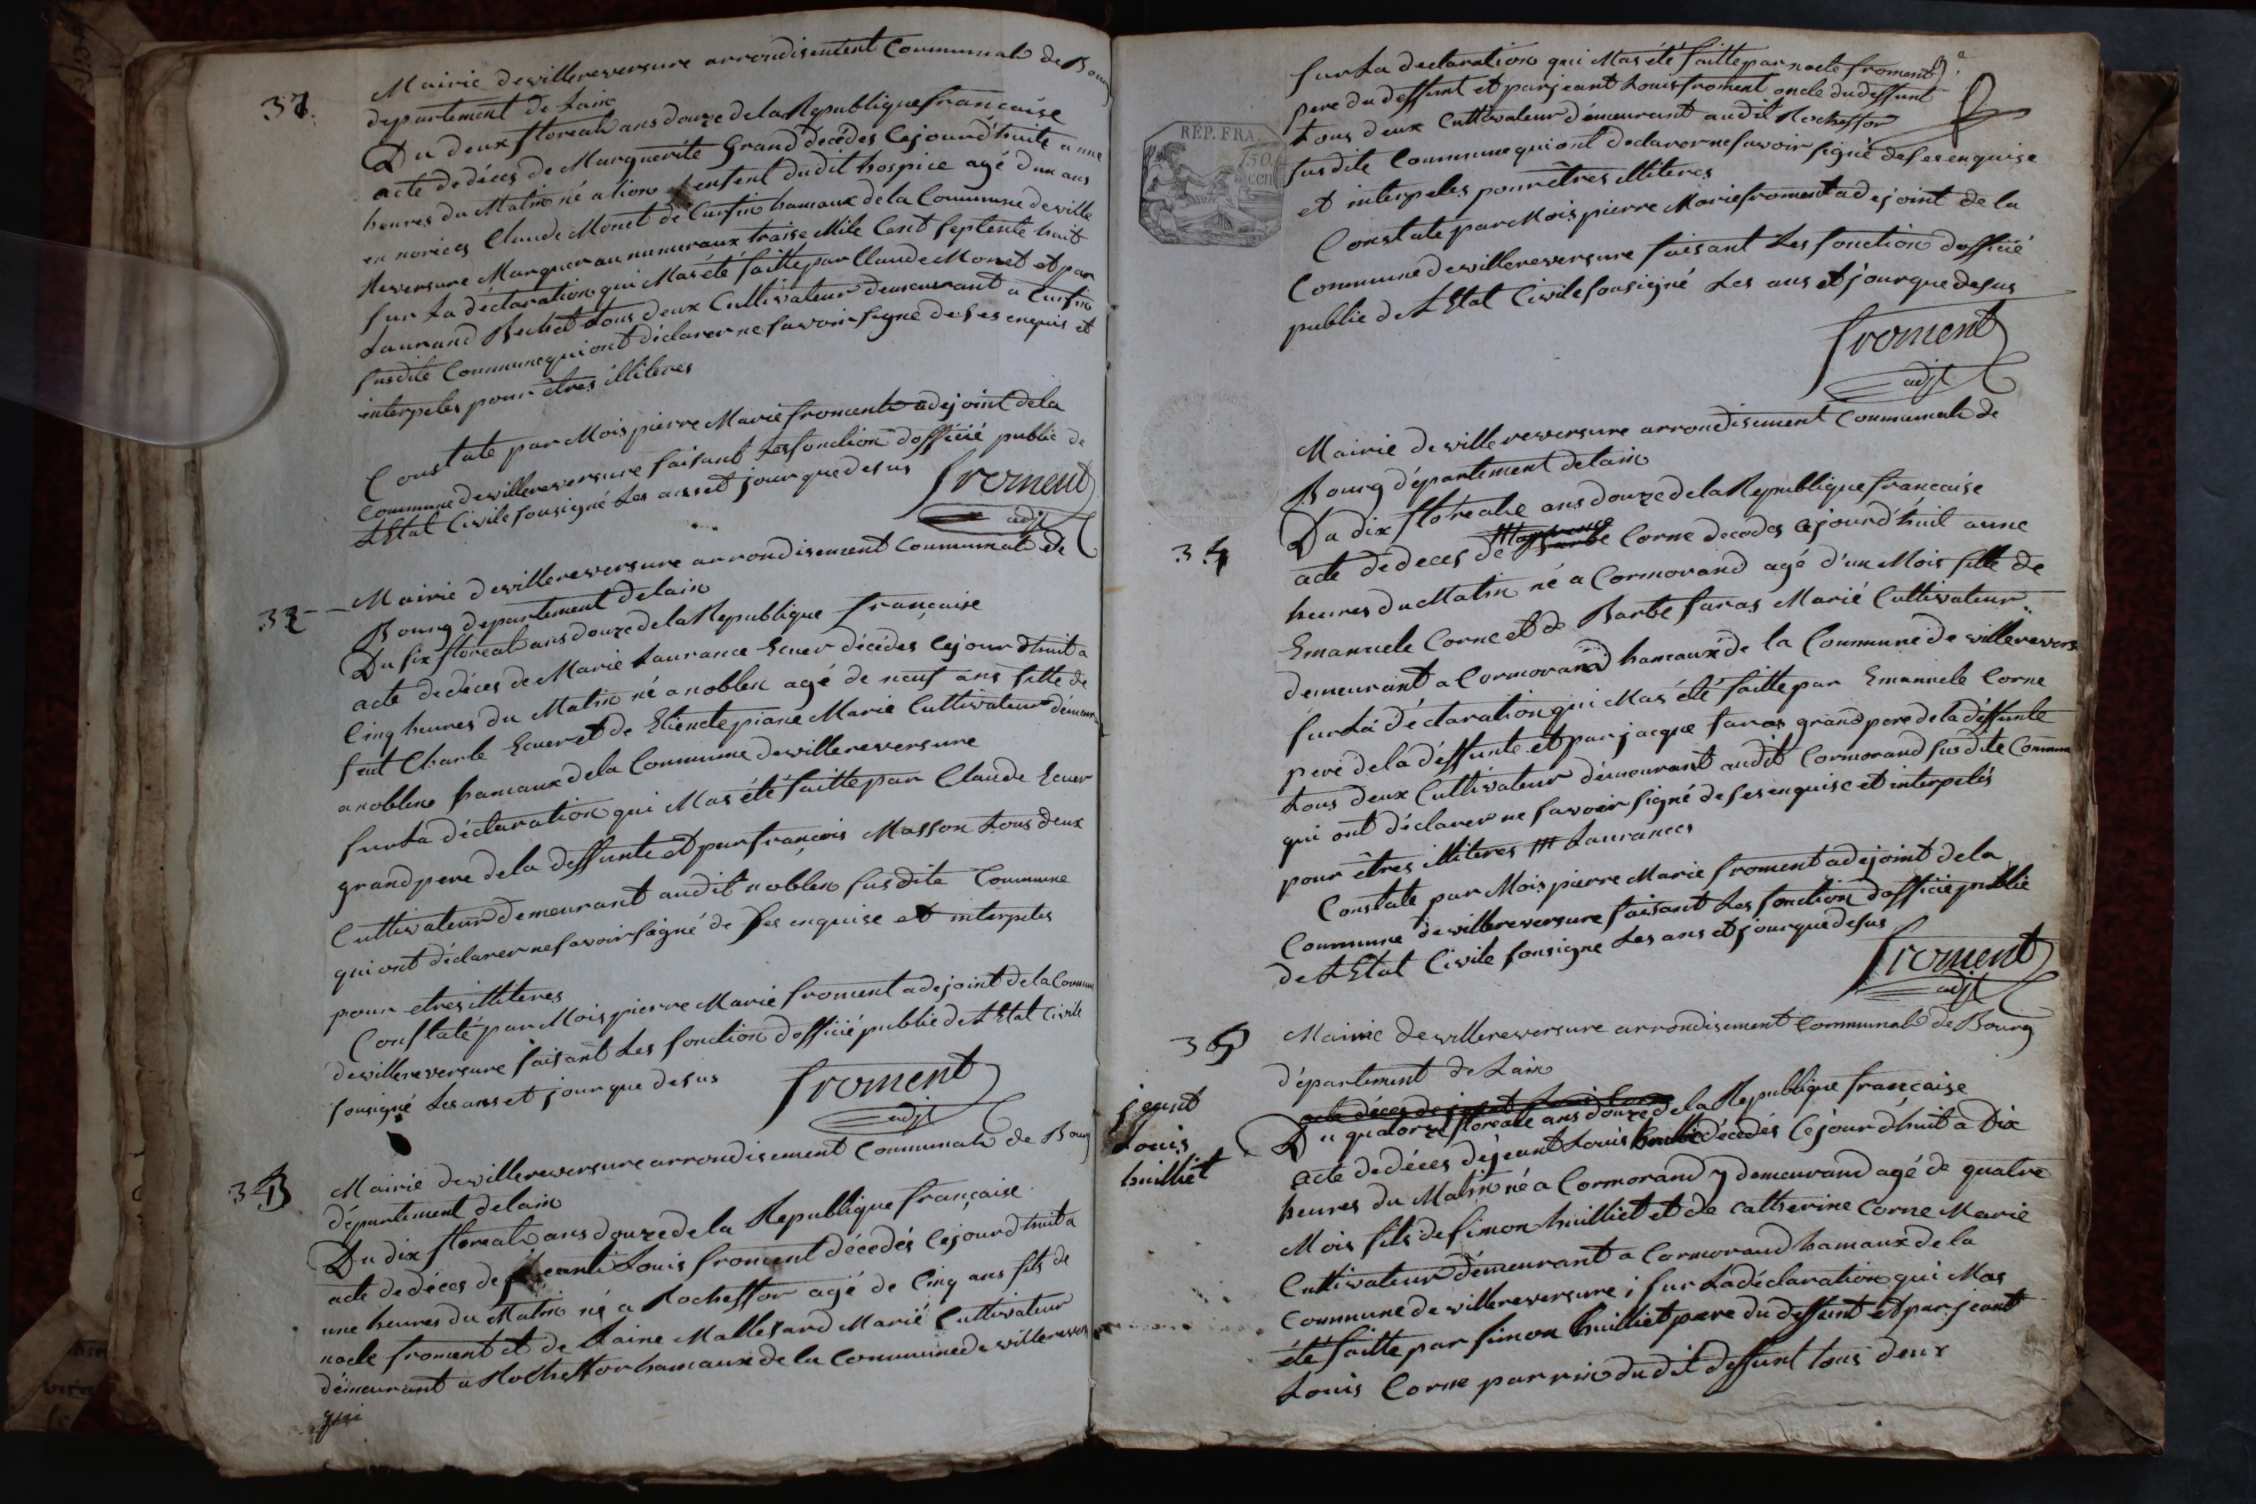 37.
Mairie de villereversure arrondisentent Communale de Bourg
departement de Lain
Du deux floreal ans douze de la Republique francaise
acte de déces de Marguerite Grand décédes Cejourd'huit a une
heures du Matin né a lion enfent dudit hospice agé dun ans
en norices Claude Monet de Curfin hamaux de la Commune de ville
Reversure Marquer au numeraux traise Mile Cent septente huit
sur La déclaration qui Mas été faitte par Claude Monet et par
Laurand Bechet tous deux Cultivateur demeurant a Curfin
susdite Commune qui ont déclarer ne savoir signé de ses enquis et
interpeles pour êtres illiteres
Constate par Mois pierre Marie froment adejoint de la
Commune de villereversure faisant Les fonction dofficié public de
LEtat Civile sousigné Les ans et jour que desus
froment
adjt
32
Mairie de villereversure arrondisement Communale de
Bourg departement de lain
Du six floreal ans douze de la Republique française
acte de déces de Marie Laurance Ecuer décédes Cejourdhuit a
Cinq heures du Matin né a noblen agé de neuf ans fille de
feut Charle Ecuer et de Etienete piane Marie Cultivateur démeur
a noblens hamaux de la Commune de villereversure
sur La déclaration qui Mas été faitte par Claude Ecuer
grand pere de la deffunte et par françois Masson tous deux
Cultivateur demeurant audit noblen susdite Commune
qui ont déclarer ne savoir signé de ses enquise et interpeles
pour etres illiteres
Constaté par Mois pierre Marie froment adejoint de la Commune
de villereversure faisant Les fonction dofficié public de LEtat Civile
sousigné Les ans et jour que desus
froment
adjt
33
Mairie de villereversure arrondisement Communale de Bourg
département de lain
Du dix floreal ans douze de la Republique française
acte de déces de jeant Louis froment décédés Cejourdhuit a
une heures du Matin né a Rocheffor agé de Cinq ans fils de
noele froment et de Laine Mallesard Marié Cultivateur
démeurant a Rocheffor hamaux de la Commune de villerevers
qui
sur La declaration qui Mas été faitte par noele froment
pere du deffunt et par jeant Louis froment oncle du deffunt
tous deux Cultivateur démeurant audit Rocheffor
susdite Commune qui ont declarer ne savoir signé de ses enquise
et interpeles pour êtres illiteres
REP. FRA.
50
cen
Constate par Mois pierre Marie froment adejoint de la
Commune de villereversure faisant Les fonction dofficié
public de LEtat Civile sousigné Les ans et jour que desus
froment
adjt
Mairie de villereversure arrondisement Communale de
Bourg département de lain
Du dix floréale ans douze de la Republique francaise
34
acte de deces de Corne decedes Cejourd'huit a une
heures du Matin né a Cormorand agé d'un Mois fille de
Emanuele Corne et de Barbe faras Marié Cultivateur
demeurant a Cormorand hameaux de la Commune de villerevers
sur La déclaration qui Mas été faitte par Emanuele Corne
peré de la déffunte et par jacque faras grand pere de la déffunte
tous deux Cultivateur démeurant audit Cormorand susdite Commune
qui ont déclarer ne savoir signé de ses enquise et interpelés
pour êtres illiteres Laurances
Constate par Mois pierre Marie froment adejoint de la
Commune de villereversure faisant Les fonction dofficié public
de LEtat Civile sousigne Les ans et jour que desus
froment
adjt
35
Mairie de villereversure arrondisement Communale de Bourg
département de Lain
acte déces de jeant Louis Corne
Du quatorze floreale ans douze de la Republique française
jeant
Louis
huilliet
acte de déces de jeant Louis décédés Cejourdhuit a Dix
heures du Matin né a Cormorand y demeurand agé de quatre
Mois fils de simon huilliet et de catherine Corne Marie
Cultivateur démeurant a Cormorand hamaux de la
Commune de villereversure ; sur La déclaration qui Mas
été faitte par simon huilliet pere du deffunt et par jeant
Louis Corne parrin dudit deffunt tous deux